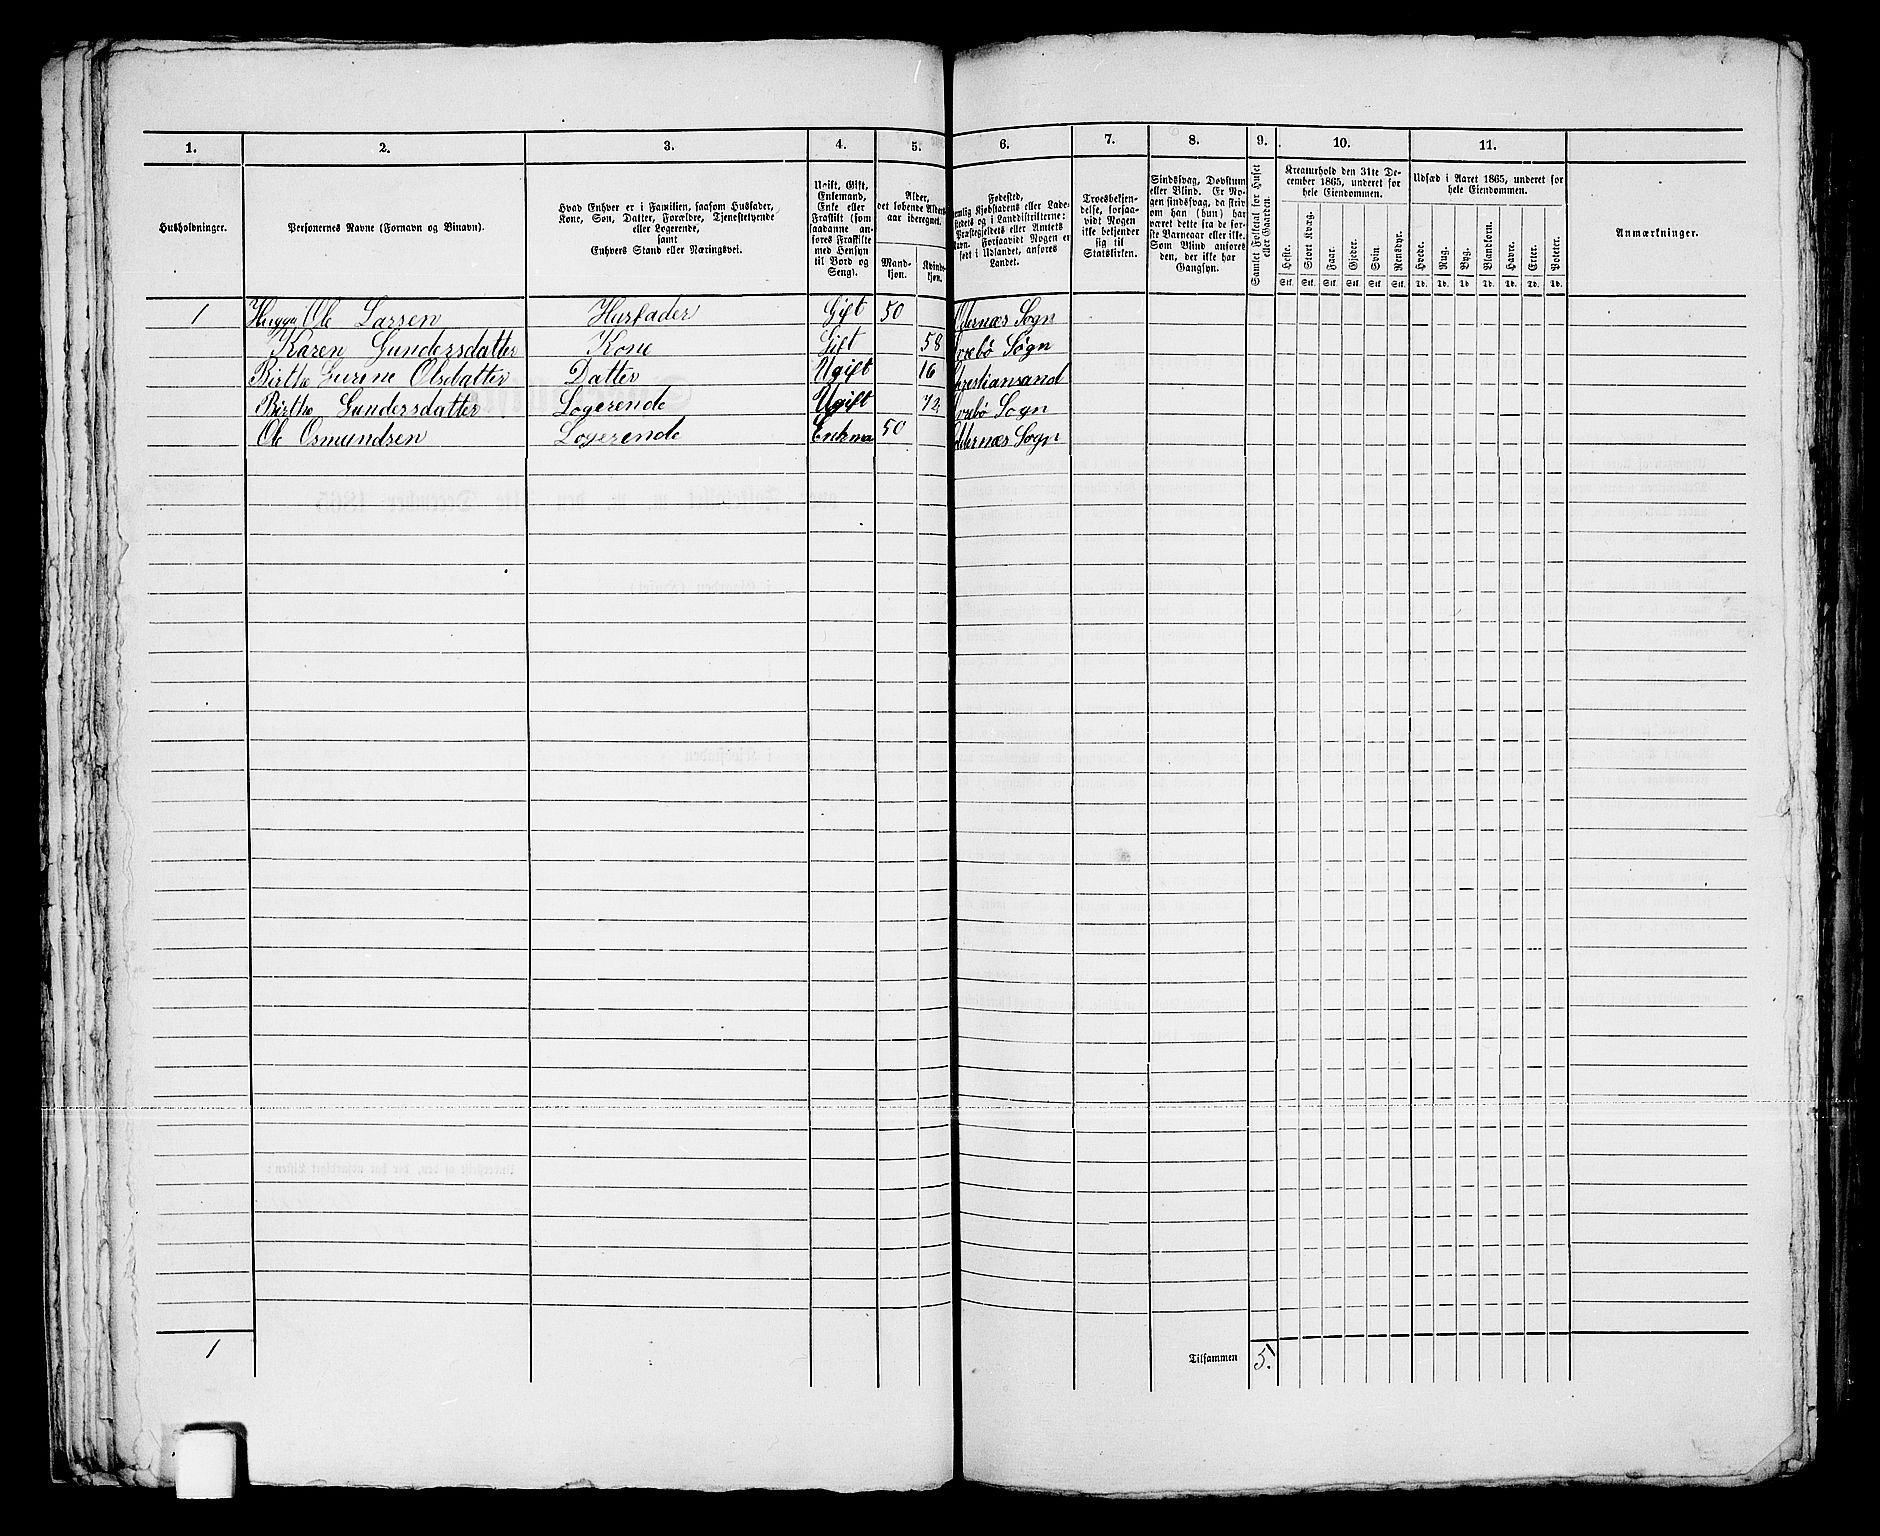 1. 2. 3. 4. 5. 6. 7. 8. 9. 10. 11.
Husholdninger.
Personernes Navne (Fornavn og Binavn).
Hvad Enhver er i Familien, saasom Husfader,
Kone, Søn, Datter, Forældre, Tjenestetyende
eller Logerende,
samt
Enhvers Stand eller Næringsvei.
Ugift, Gift,
Enkemand,
Enke eller
Fraskilt (som
saadanne an-
føres Fraskilte
med Hensyn
til Bord og
Seng).
Alder,
det løbende Alders-
aar iberegnet.
Mand-
kjøn.
Kvind-
kjøn.
Fødested,
nemlig Kjøbstadens eller Lade-
stedets og i Landdistrikterne:
Præstegjeldets eller Amtets
Navn. Forsaavidt Nogen er
født i Udlandet, anføres
Landet.
Troesbekjen-
delse, forsaa-
vidt Nogen
ikke bekjender
sig til
Statskirken.
Sindssvag, Døvstum
eller Blind. Er No-
gen sindssvag, da skriv
om han (hun) har
været dette fra de før-
ste Barneaar eller ikke.
Som Blind anføres
den, der ikke har
Gangsyn.
Samlet Folketal for Huset
eller Gaarden.
Kreaturhold den 31te De-
cember 1865, underet for
hele Eiendommen.
Heste. Stort Kvæg. Faar. Gjeder. Svin. Rensdyr.
Stk. Stk. Stk. Stk. Stk. Stk.
Udsæd i Aaret 1865, underet for
hele Eiendommen.
Hvede. Rug. Byg. Blandkorn. Havre. Erter. Poteter.
Td. Td. Td. Td. Td. Td. Td.
Anmærkninger.
1 Ole Larsen Husfader Gift 50 Odernæs Sogn
Karen Gundersdatter Kone Gift 58 Sogn
Birthe Gurine Olsdatter Datter Ugift 16 Christiansand
Birthe Gundersdatter Logerende Ugift 72 Sogn
Ole Osmundsen Logerende Enkma 50 Odernæs Sogn
1 Tilsammen 5.